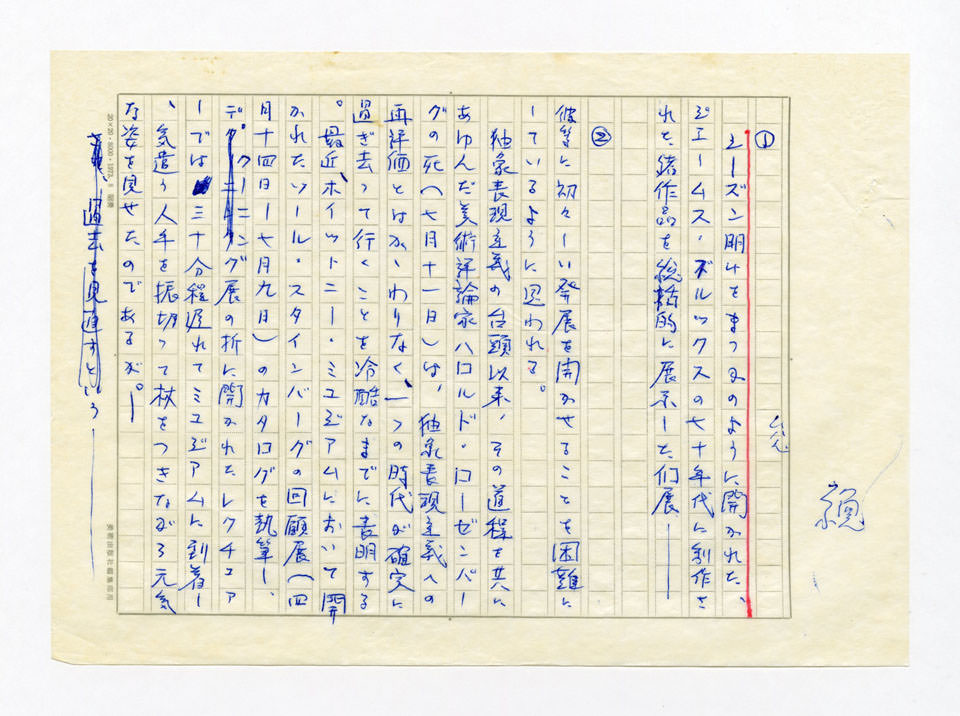 ①
シーズン明けをまつかのように開かれた、
ジェームス・ボルックスの七十年代に制作さ
れた諸作品を総括的に展示した個展——
②
彼等に初々しい発展を開かせることを困難に
しているように思われる。
抽象表現主義の台頭以来、その道程を共に
あゆんだ美術評論家ハロルド・ローゼンバー
グの死(七月十一日)は、抽象表現主義への
再評価とはかゝわりなく、一つの時代が確実に
過ぎ去って行くことを冷酷なまでに表明する
。最近、ホイットニー・ミュジアムにおいて開
かれたソール・スタインバーグの回顧展(四
月十四日ー七月九日)のカタログを執筆し、
デ・クーニング展の折に開かれたレクチュア
ーでは三十分程遅れてミュジアムに到着し
、気遣う人手を振切って杖をつきながら元気
な姿を見せたのであるが。—
過去を見直すという——
20×20
美術出版社編集部用